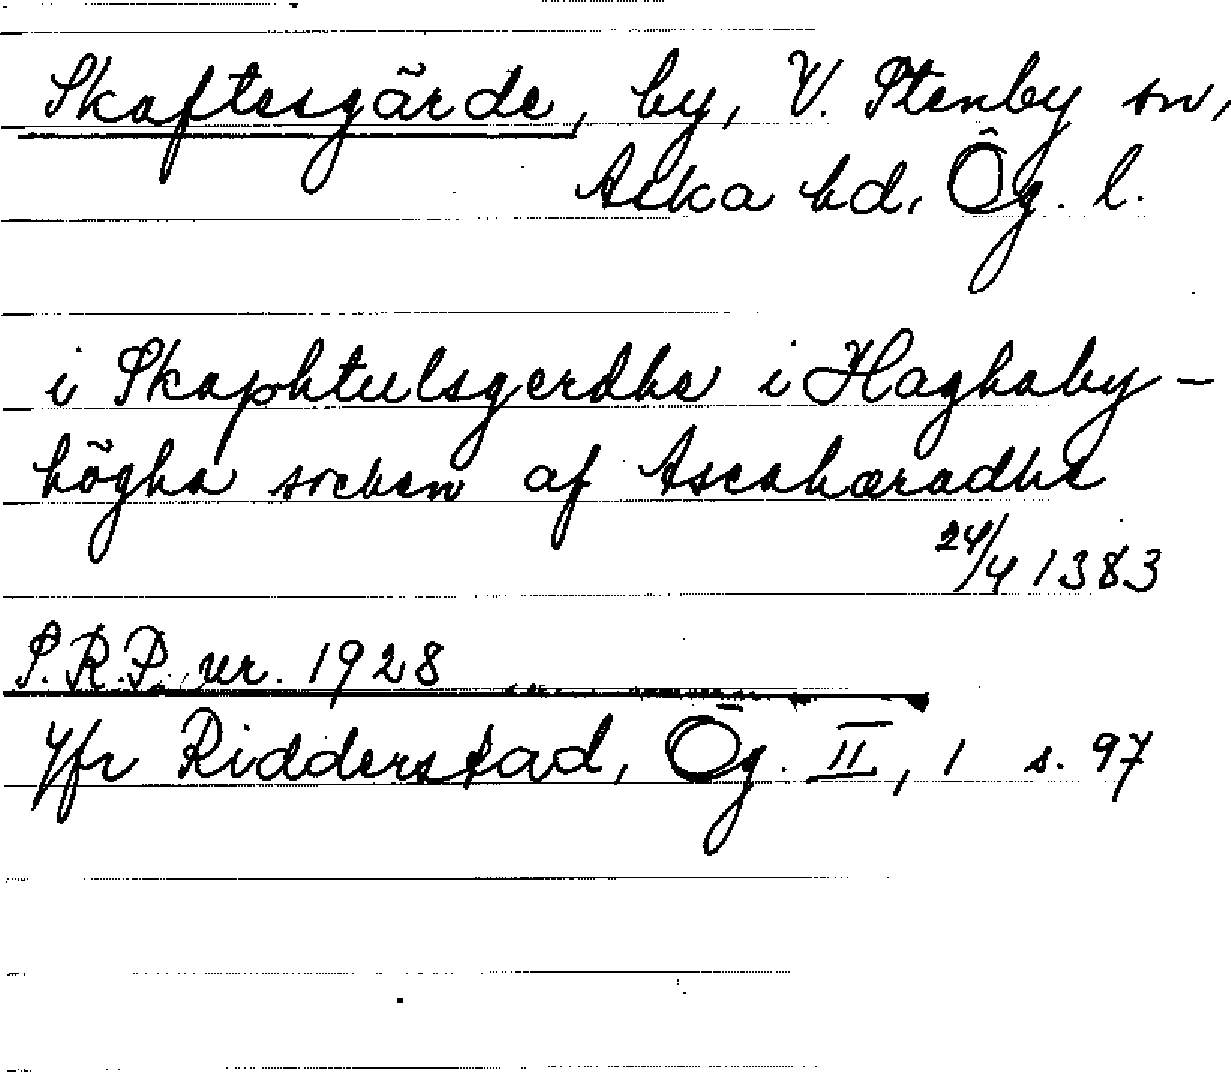 Skaftesgärde, by, V. Stenby sn,
Aska hd, Ög. l.
i Skaphtulsgerdhe i Haghaby-
högha sochen af Ascahæradhe
24/4 1383
S.R.P. nr. 1928
Jfr Ridderstad, Ög. II, 1 s. 97